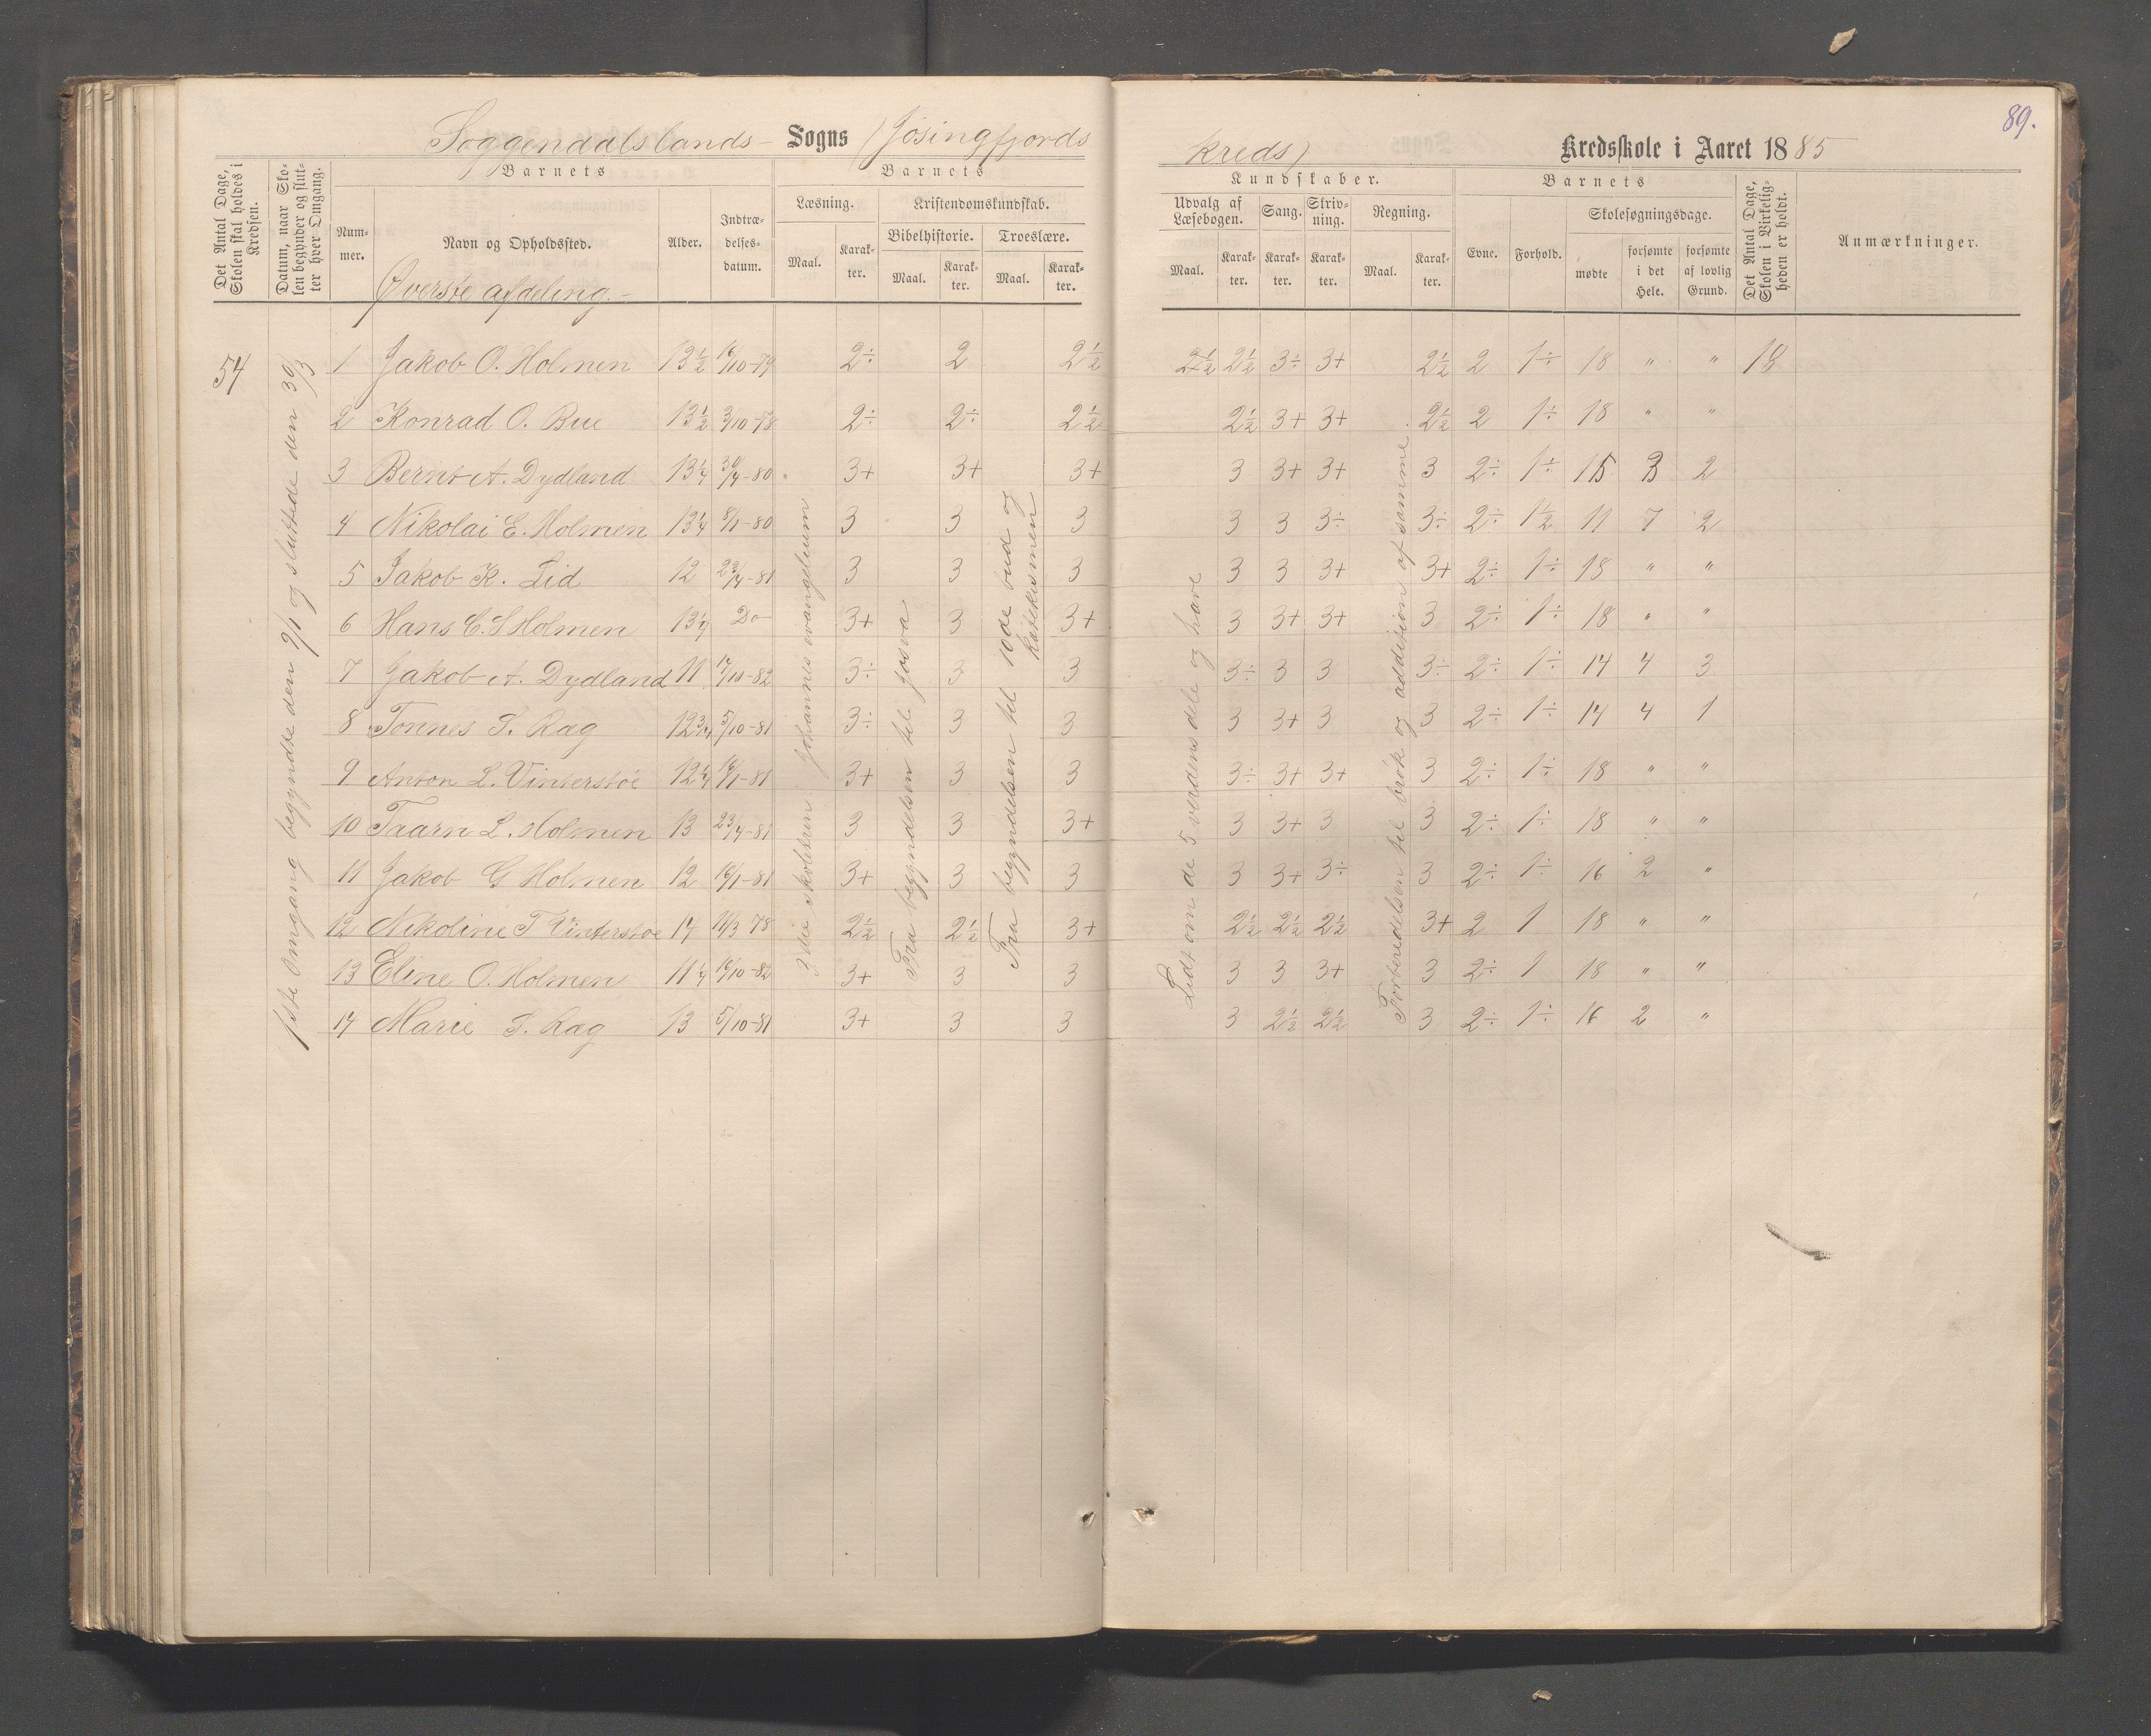 89.
Soggendalslands- Sogns (Jösingfjords kreds) Kredsskole i Aaret 1885
Det Antal Dage, Skolen skal holdes i Kredsen.
Datum, naar Skolen begynder og slutter hver Omgang.
Barnets
Barnets
Kundskaber.
Barnets
Det Antal Dage, Skolen i Virkeligheden er holdt.
Anmærkninger.
Nummer.
Navn og Opholdssted.
Alder.
Indtrædelsesdatum.
Læsning.
Kristendomskundskab.
Bibelhistorie.
Troeslære.
Udvalg af Læsebogen.
Sang.
Skrivning.
Regning.
Evne.
Forhold.
Skolesøgningsdage.
Maal. Karakter. Maal. Karakter. Maal. Karakter. Maal. Karakter. Karakter. Karakter. Maal. Karakter.
mødte
forsømte i det Hele.
forsømte af lovlig Grund.
Øverste afdeling.-
54
1ste Omgang begyndte den 9/1 og sluttede den 30/3
1 Jakob O. Holmen 13½ 16/10-79 2÷ 2 2½ 2½ 2½ 3÷ 3+ 2½ 2 1÷ 18 " " 18
2 Konrad O. Bue 13½ 3/10-78 2÷ 2÷ 2½ 2½ 3+ 3+ 2½ 2 1÷ 18 " "
3 Bernt A. Dydland 13¼ 30/4-80 3+ 3+ 3+ 3 3+ 3+ 3 2÷ 1÷ 15 3 2
4 Nikolai E. Holmen 13¼ 8/1-80 3 3 3 3 3 3÷ 3÷ 2÷ 1½ 11 7 2
5 Jakob K. Lid 12 23/4-81 3 3 3 3 3 3+ 3+ 2÷ 1÷ 18 " "
6 Hans E. S Holmen 13¼ Do 3+ 3 3+ 3 3+ 3+ 3 2÷ 1÷ 18 " "
7 Jakob A. Dydland 11 17/10-82 3÷ 3 3 3÷ 3 3 3÷ 2÷ 1÷ 14 4 3
8 Tönnes S. Ræg 12¾ 5/10-81 3÷ 3 3 3 3+ 3 3 2÷ 1÷ 14 4 1
9 Anton L. Vinterstöe 12¼ 16/1-81 3+ 3 3 3÷ 3+ 3+ 3 2÷ 1÷ 18 " "
10 Taarn L. Holmen 13 23/4-81 3 3 3+ 3 3+ 3 3 2÷ 1÷ 18 " "
11 Jakob G Holmen 12 16/1-81 3+ 3 3 3 3+ 3÷ 3 2÷ 1÷ 16 2 "
12 Nikoline T Vinterstöe 14 11/3 78 2½ 2½ 3+ 2½ 2½ 2½ 3+ 2 1 18 " "
13 Eline O. Holmen 11¼ 16/10-82 3+ 3 3 3 3 3+ 3 2÷ 1 18 " "
14 Marie S. Ræg 13 5/10-81 3+ 3 3 3 2½ 2½ 3 2÷ 1÷ 16 2 "
johannes evangelium
Fra begyndelsen til josva
Fra begyndelsen til 10de bud og katekismen
Lidt om de 5 verdens dele og have
til brök og addition af samme.